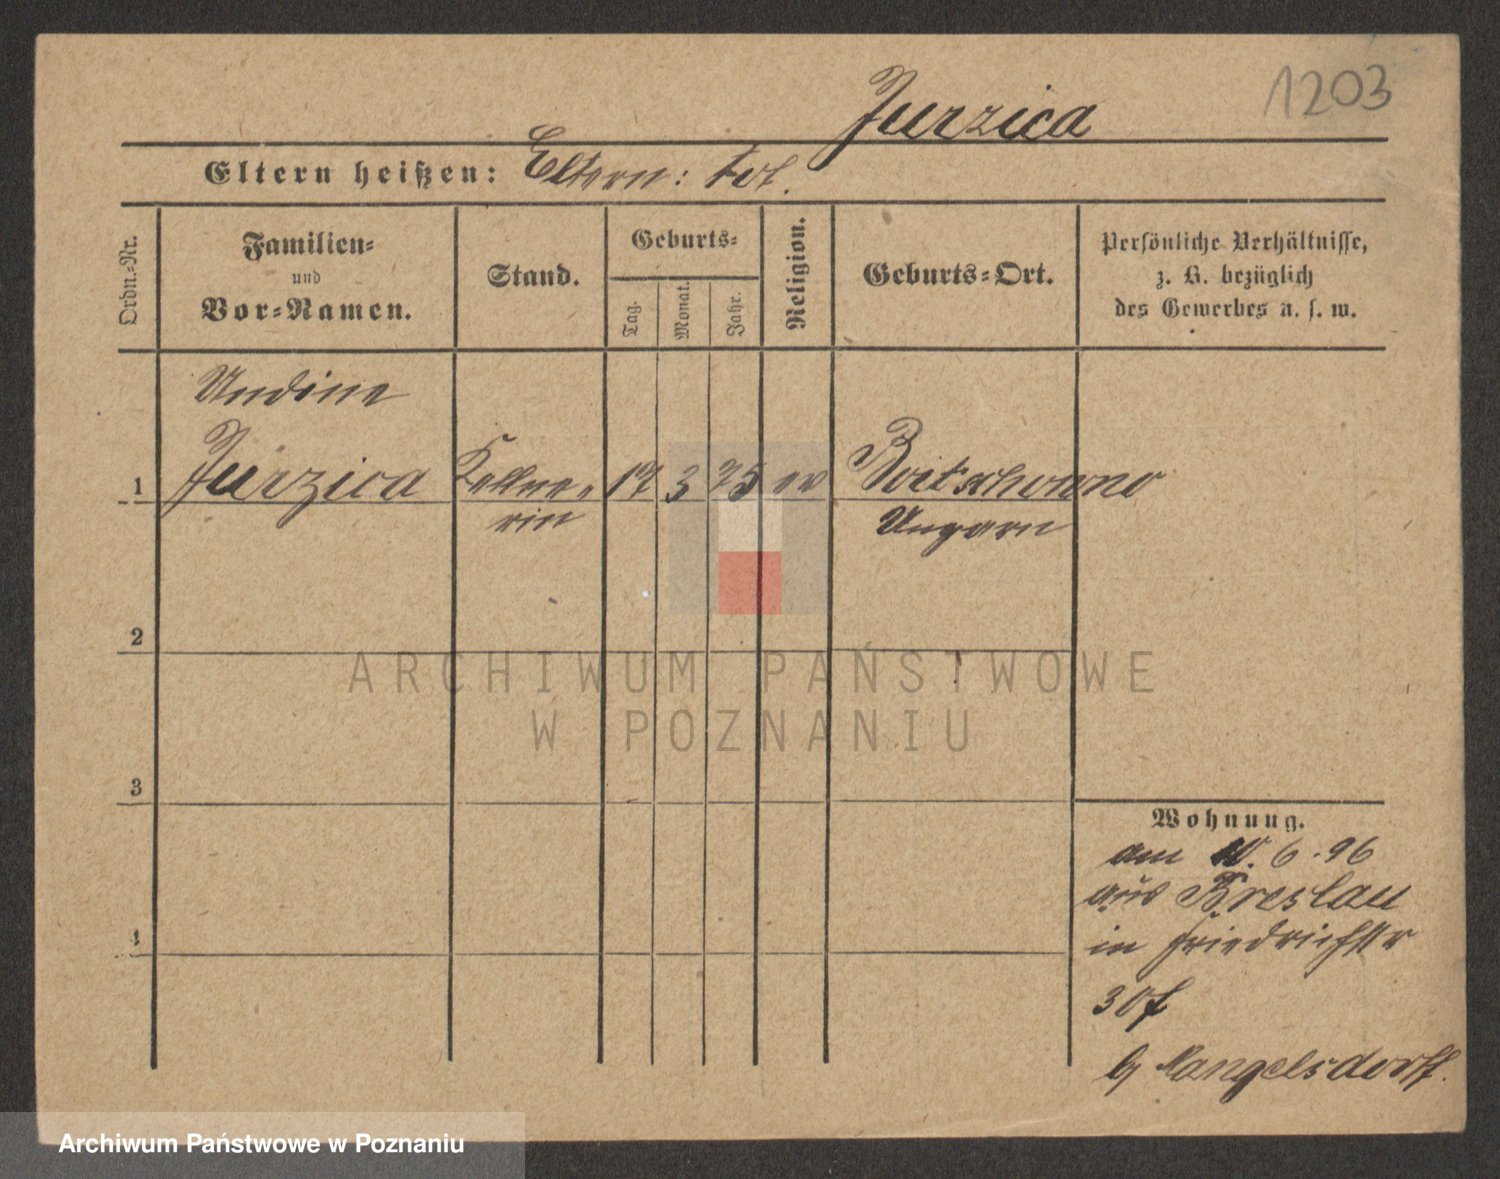 1203
Jurzica
Eltern heißen: Eltern: tot.
Ordn.-Nr.
Familien-
und
Vor-Namen.
Stand.
Geburts-
Tag.
Monat.
Jahr.
Religion.
Geburts-Ort.
Persönliche Verhältnisse,
z. B. bezüglich
des Gewerbes u. s. w.
Undine
1 Jurzica Kellne- 17 3 75 ev
rin Ungarn
2
ARCHIWUM PAŃSTWOWE
W POZNANIU
3
Wohnung.
am 10. 6. 96
aus Breslau
4
in Friedrichstr
30f
Mangelsdorff.
Archiwum Państwowe w Poznaniu